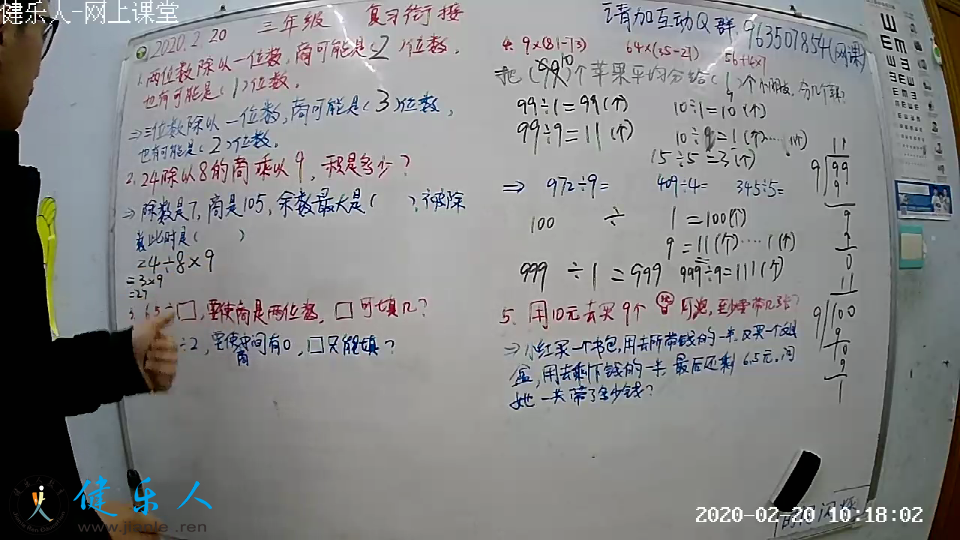 健乐人-网上课堂
三年级 复习衔接
请加互动Q群:963507854(网课)
2020.2.20
1.两位数除以一位数,商可能是(2)位数,
也有可能是(1)位数。
⇒三位数除以一位数,商可能是(3)位数,
也有可能是(2)位数。
2.24除以8的商乘以9,积是多少?
⇒除数是7,商是105,余数最大是( ),被除
数此时是( )
24÷8×9
=3×9
=27
3. 65÷□,要使商是两位数,□可填几?
÷2,要使中间有0,□只能填?
商
4. 9×(81-13) 64×(35-21) 56+4×7
把(99)个苹果平均分给(1)个小朋友,
10
99÷1=99(个) 10÷1=10(个)
99÷9=11(个) 10÷9=1(个)……1(个)
15÷5=3(个)
⇒ 972÷9= 409÷4= 345÷5=
100 ÷ 1=100(个)
9=11(个)……1(个)
999÷1=999 999÷9=111(个)
11
9 99
9
9
9
0
11
9 100
9
10
9
1
5. 用10元去买9个
⇒小红买一个书包,用去所带钱的一半,又买一个文具
盒,用去剩下钱的一半,最后还剩6.5元,问
她一共带了多少钱?
健乐人
www.jianle.ren
2020-02-20 10:18:02